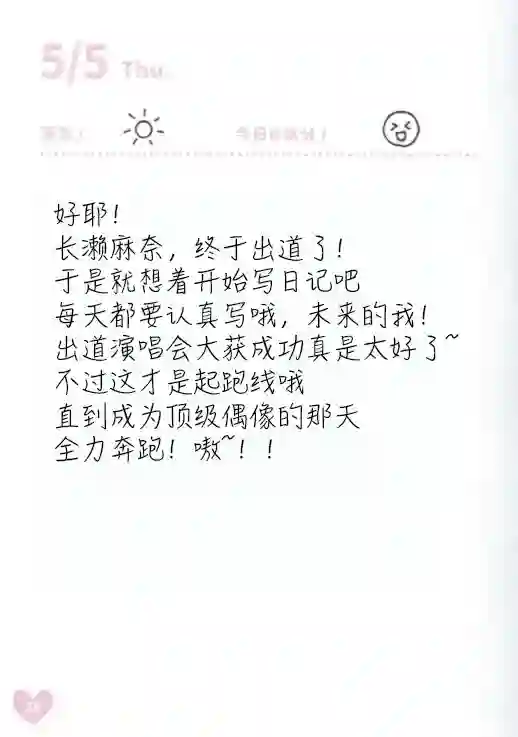 5/5 Thu.
天气!
今日の気分!
好耶!
长濑麻奈,终于出道了!
于是就想着开始写日记吧
每天都要认真写哦,未来的我!
出道演唱会大获成功真是太好了~
不过这才是起跑线哦
直到成为顶级偶像的那天
全力奔跑!嗷~!!